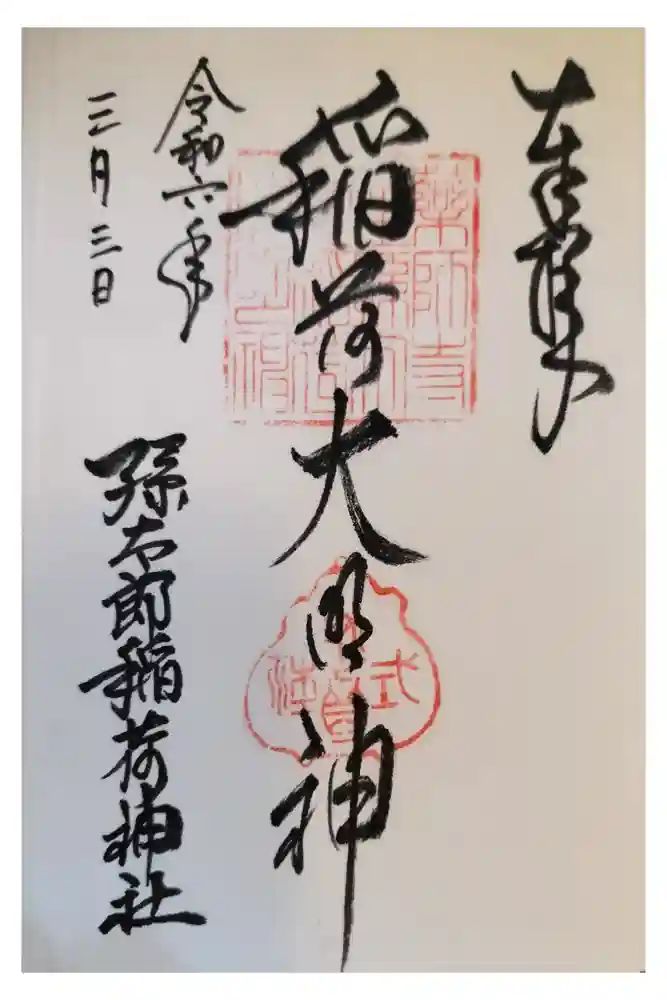 奉拝
稲荷大明神
令和六年
三月三日
孫太郎稲荷神社
薬師寺